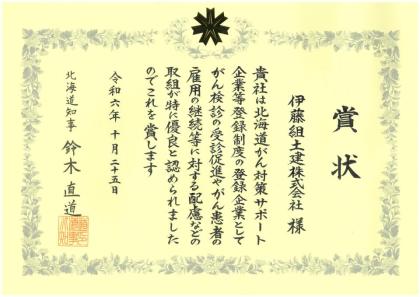 賞状
伊藤組土建株式会社 様
貴社は北海道がん対策サポート
企業等登録制度の登録企業として
がん検診の受診促進やがん患者の
雇用の継続等に対する配慮などの
取組が特に優良と認められました
のでこれを賞します
令和六年 十月二十五日
北海道知事 鈴木直道